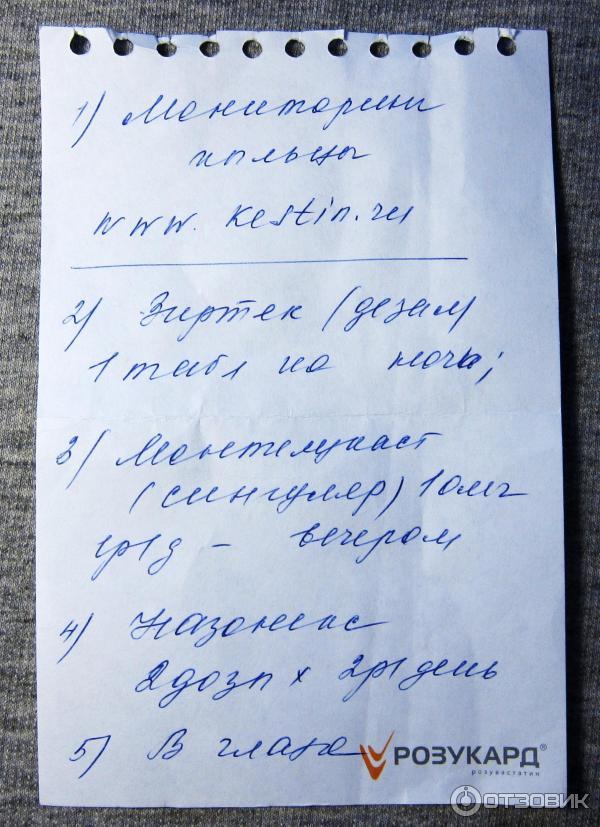 1) Мониторинг
пыльцы
www. kestin.ru
2) Зиртек (дезал)
1 табл на ночь;
3) Монтелукаст
(сингуляр) 10мг
1р/д - вечером
4) Назонекс
2 дозы х 2р/день
5) В глаза
РОЗУКАРД®
розувастатин
ОТЗОВИК